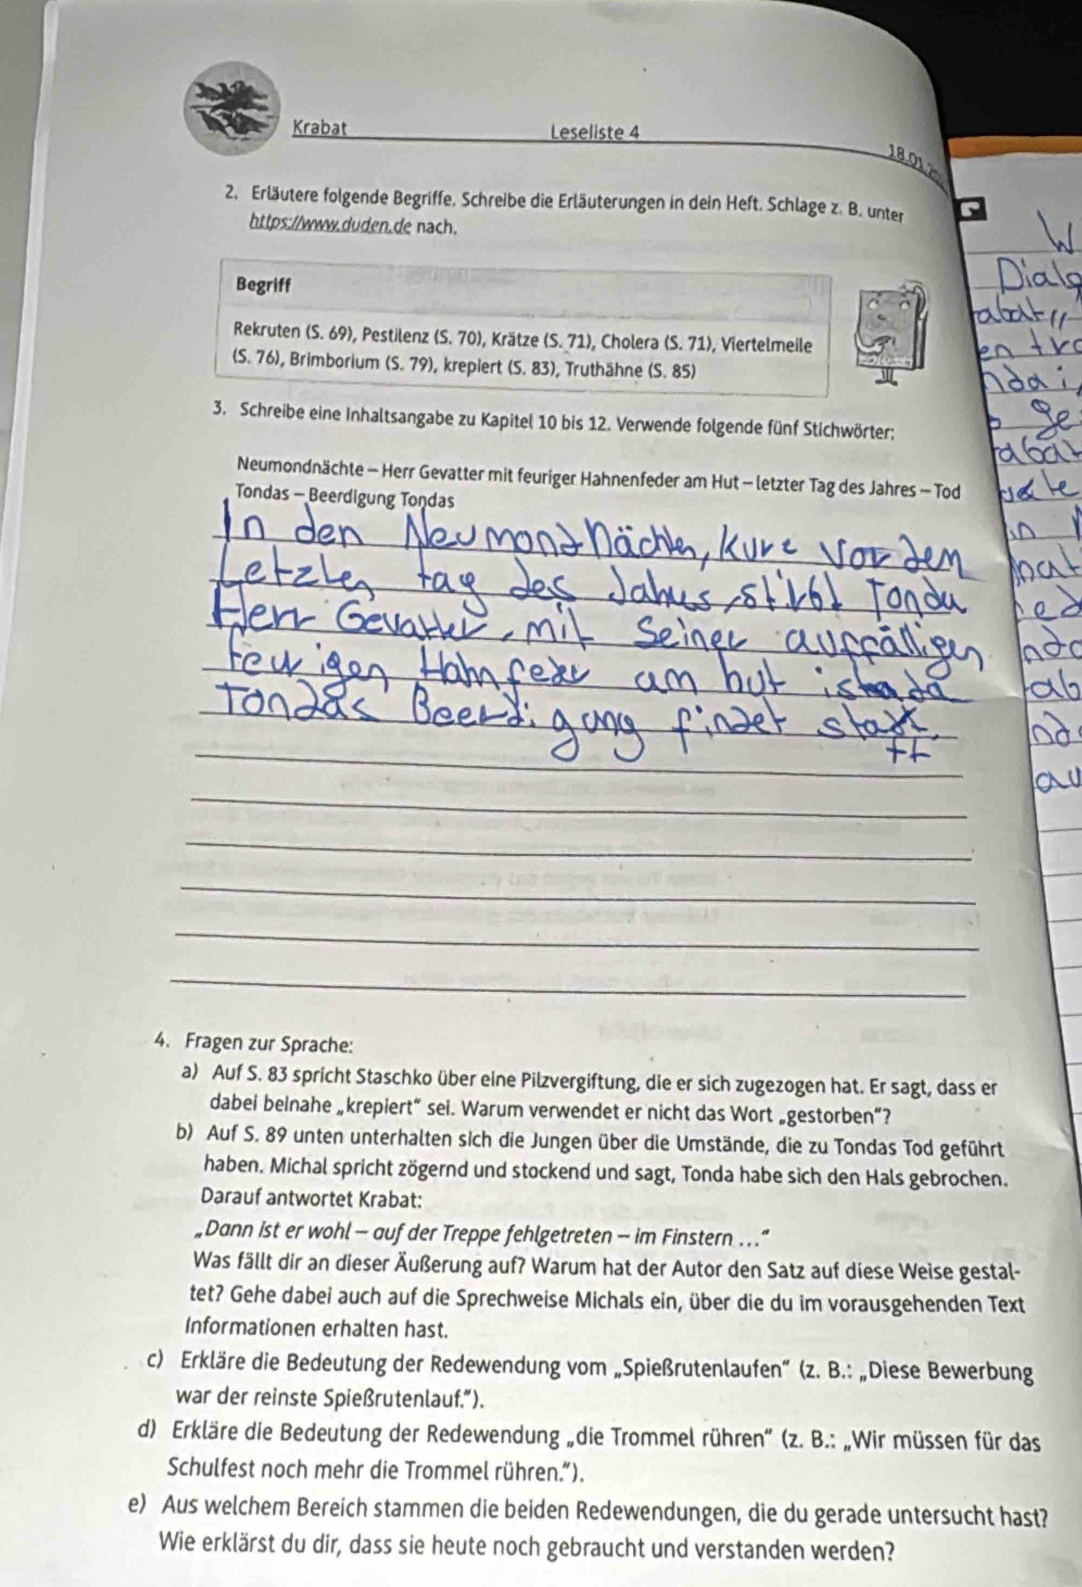 Krabat Leseliste 4
2. Erläutere folgende Begriffe. Schreibe die Erläuterungen in dein Heft. Schlage z. B. unter
https://www.duden.de nach.
Begriff
Rekruten (S. 69), Pestilenz (S. 70), Krätze (S. 71), Cholera (S. 71), Viertelmeile
(S. 76), Brimborium (S. 79), krepiert (S. 83), Truthähne (S. 85)
3. Schreibe eine Inhaltsangabe zu Kapitel 10 bis 12. Verwende folgende fünf Stichwörter:
Neumondnächte – Herr Gevatter mit feuriger Hahnenfeder am Hut – letzter Tag des Jahres – Tod
Tondas – Beerdigung Tondas
In den Neumondnächten, kurz vor dem
Letzten tag des Jahres, stirbt Tonda
Herr Gevatter, mit seiner auffälligen
feurigen Hahnfeder am hut ist da
Tondas Beerdigung findet statt.
tt
4. Fragen zur Sprache:
a) Auf S. 83 spricht Staschko über eine Pilzvergiftung, die er sich zugezogen hat. Er sagt, dass er
dabei beinahe „krepiert“ sei. Warum verwendet er nicht das Wort „gestorben“?
b) Auf S. 89 unten unterhalten sich die Jungen über die Umstände, die zu Tondas Tod geführt
haben. Michal spricht zögernd und stockend und sagt, Tonda habe sich den Hals gebrochen.
Darauf antwortet Krabat:
„Dann ist er wohl – auf der Treppe fehlgetreten – im Finstern ...“
Was fällt dir an dieser Äußerung auf? Warum hat der Autor den Satz auf diese Weise gestal-
tet? Gehe dabei auch auf die Sprechweise Michals ein, über die du im vorausgehenden Text
Informationen erhalten hast.
c) Erkläre die Bedeutung der Redewendung vom „Spießrutenlaufen“ (z. B.: „Diese Bewerbung
war der reinste Spießrutenlauf.“).
d) Erkläre die Bedeutung der Redewendung „die Trommel rühren“ (z. B.: „Wir müssen für das
Schulfest noch mehr die Trommel rühren.“).
e) Aus welchem Bereich stammen die beiden Redewendungen, die du gerade untersucht hast?
Wie erklärst du dir, dass sie heute noch gebraucht und verstanden werden?